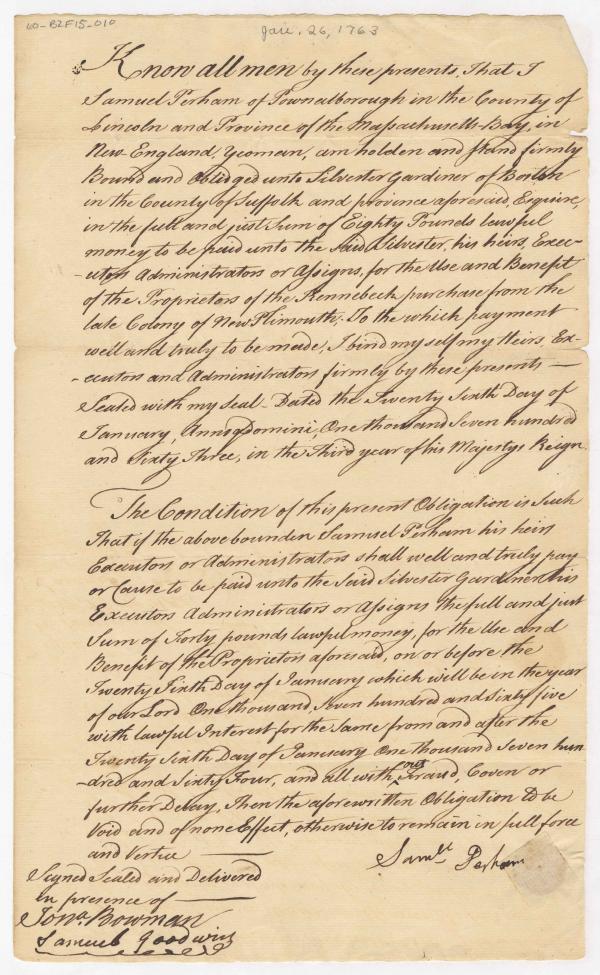 60-B2F15-010
Jan. 26, 1763
Know all men by these presents, That I
Samuel Perham of Pownalborough in the County of
Lincoln and Province of the Massachusetts-Bay, in
New-England, Yeoman, am holden and stand firmly
Bound and Obliged unto Silvester Gardiner of Boston
in the County of Suffolk and province aforesaid, Esquire,
in the full and just Sum of Eighty Pounds lawful
money to be paid unto the said Silvester, his heirs, Exec-
-utors Administrators or Assigns, for the Use and Benefit
of the Proprietors of the Kennebeck purchase from the
late Colony of New Plimouth; To the which payment
well and truly to be made, I bind my self my Heirs, Ex-
-ecutors and Administrators firmly by these presents —
Sealed with my seal - Dated the Twenty Sixth Day of
January, Annoq Domini, One thousand Seven hundred
and Sixty Three, in the Third year of his Majestys Reign
The Condition of this present Obligation is Such
That if the above bounden Samuel Perham his heirs
Executors or Administrators shall well and truly pay
or Cause to be paid unto the said Silvester Gardiner his
Executors Administrators or Assigns the full and just
Sum of Forty pounds lawful money, for the Use and
Benefit of the Proprietors aforesaid, on or before the
Twenty Sixth Day of January which will be in the year
of our Lord One thousand, Seven hundred and Sixty five
with lawful Interest for the Same from and after the
Twenty Sixth Day of January One thousand Seven hun
-dred and Sixty Four, and all with out Fraud, Coven or
further Delay, Then the aforewritten Obligation to be
Void and of none Effect, otherwise to remain in full force
and Vertue —
Saml. Perham
Signed Sealed and Delivered
in presence of —
Jona. Bowman
Samuel Goodwin